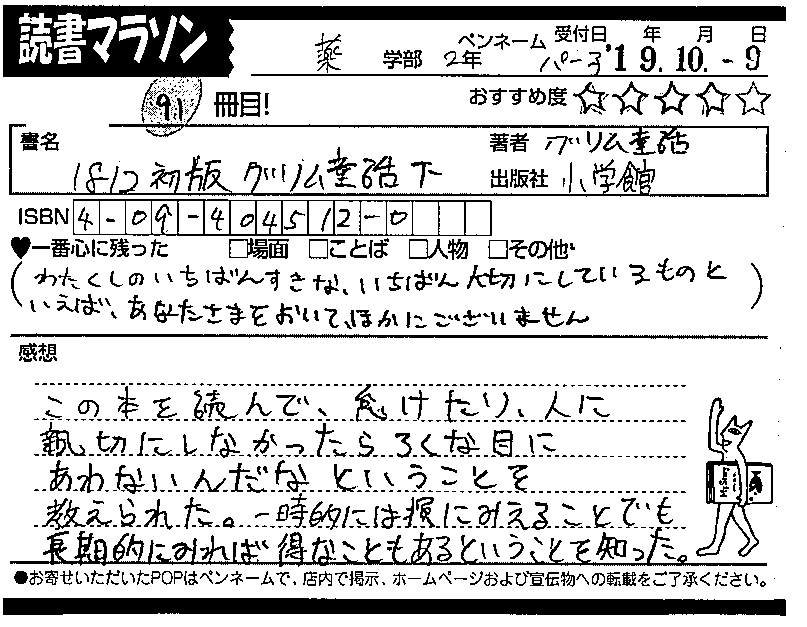 読書マラソン
薬 学部 2年 ペンネーム パーヌ 受付日 年 月 日
'19.10.-9
91 冊目! おすすめ度 ☆☆☆☆☆
書名 1812初版 グリム童話 下
著者 グリム童話
出版社 小学館
ISBN 4-09-404512-0
♥一番心に残った □場面 □ことば □人物 □その他
(わたくしのいちばんすきな、いちばん大切にしているものと
いえば、あなたさまをおいて、ほかにございません)
感想
この本を読んで、怠けたり、人に
親切にしなかったらろくな目に
あわないんだなということを
教えられた。一時的には損にみえることでも
長期的にみれば得なこともあるということを知った。
●お寄せいただいたPOPはペンネームで、店内で掲示、ホームページおよび宣伝物への転載をご了承ください。